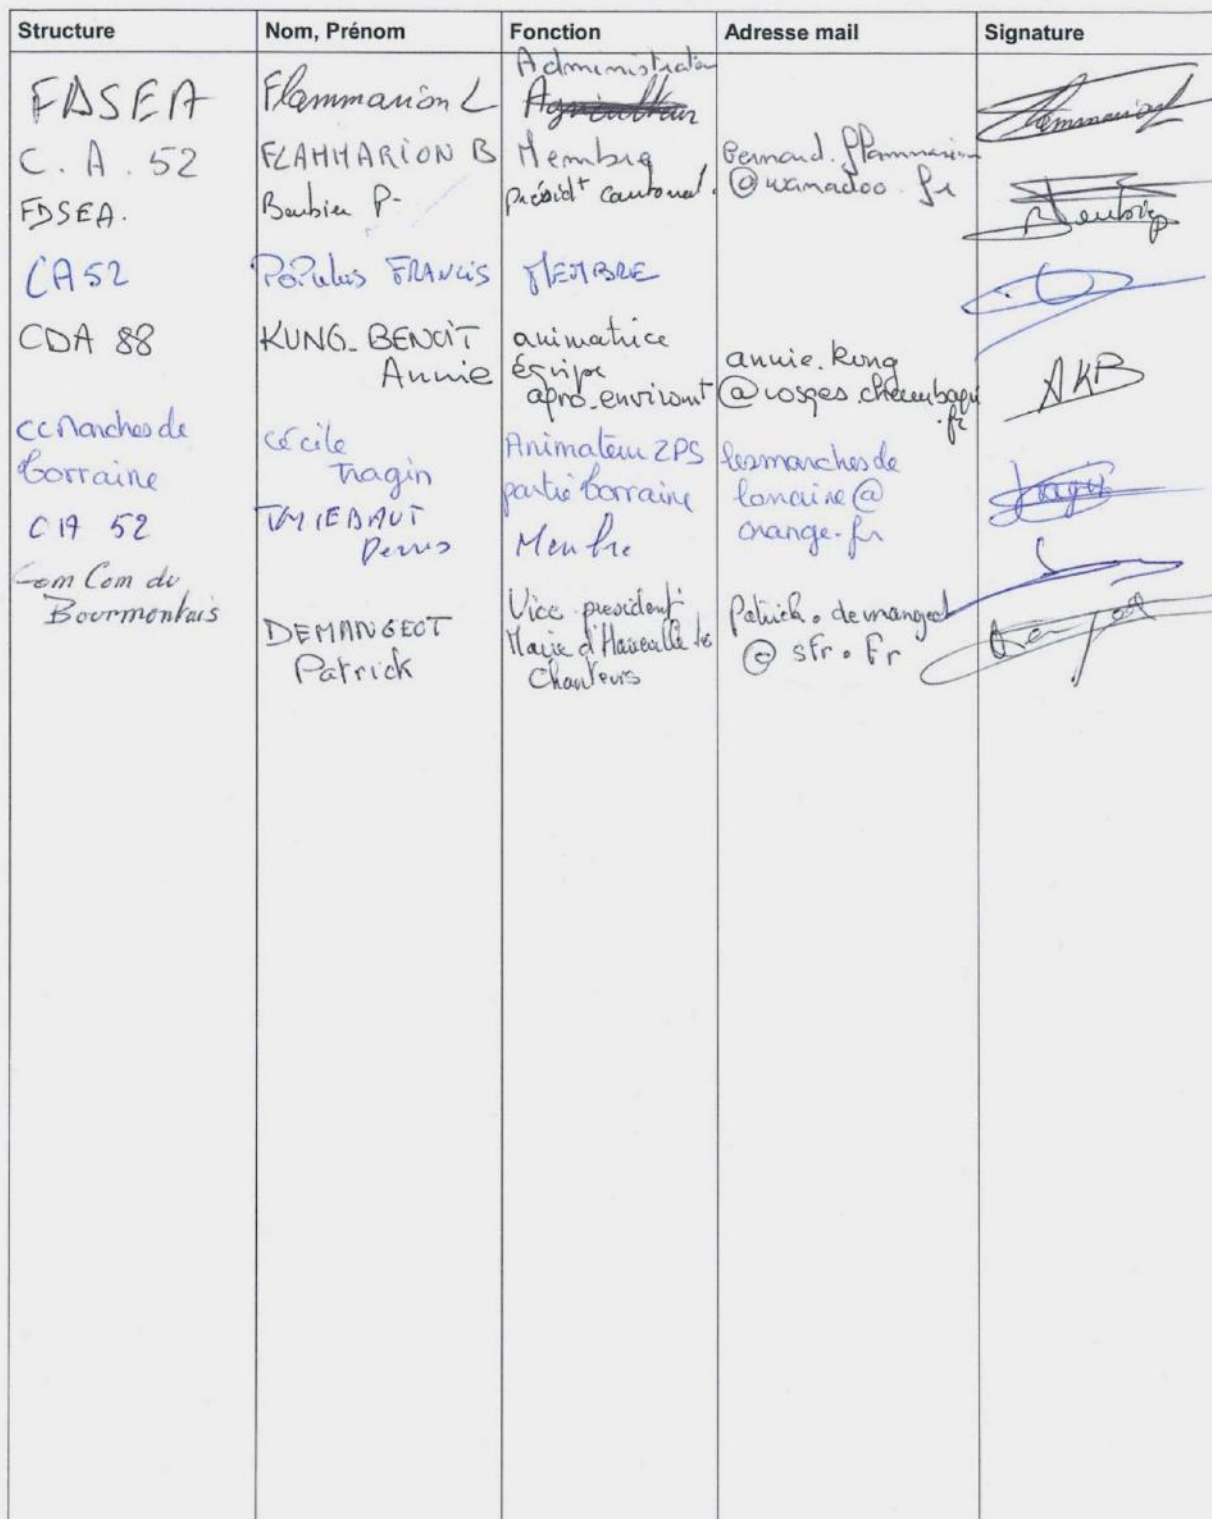 Structure
Nom, Prénom
Fonction
Adresse mail
Signature
FDSEA
Flammarion L
Administrateur
Agriculteur
Flammarion L
C. A. 52
FLAMMARION B
Membre
Bernard.flammarion
@wanadoo.fr
FDSEA.
Barbier P-
Présidt cantonal.
CA52
POPulus FRANCIS
MEMBRE
CDA 88
KUNG-BENOIT
Annie
animatrice
équipe
agro-environt
annie.kung
@vosges.chambagri
.fr
AKB
CC Marches de
Lorraine
Cécile
Tragin
Animateur ZPS
partie Lorraine
lesmarchesde
lorraine@
orange.fr
Tragin
CA 52
THIEBAUT
Denis
Membre
Com Com du
Bourmontais
DEMANGEOT
Patrick
Vice president
Maire d'Harréville les
Chanteurs
Patrick.demangeot
@sfr.fr